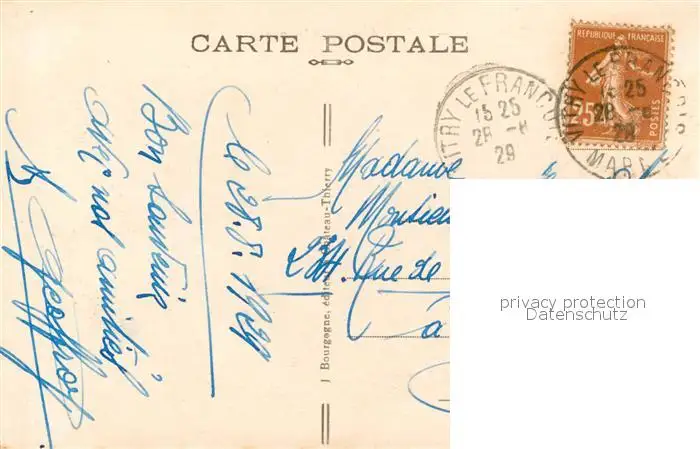 CARTE POSTALE
REPUBLIQUE FRANÇAISE
VITRY LE FRANÇOIS
15 25
28 -8
29
VITRY LE FRANÇOIS
15 25
28 -8
29
MARNE
Le 28.8.1929
Bon souvenir
nos amitiés
Madame
Monsieur
Rue de
à
J Bourgogne, éditeur, Château-Thierry
privacy protection
Datenschutz